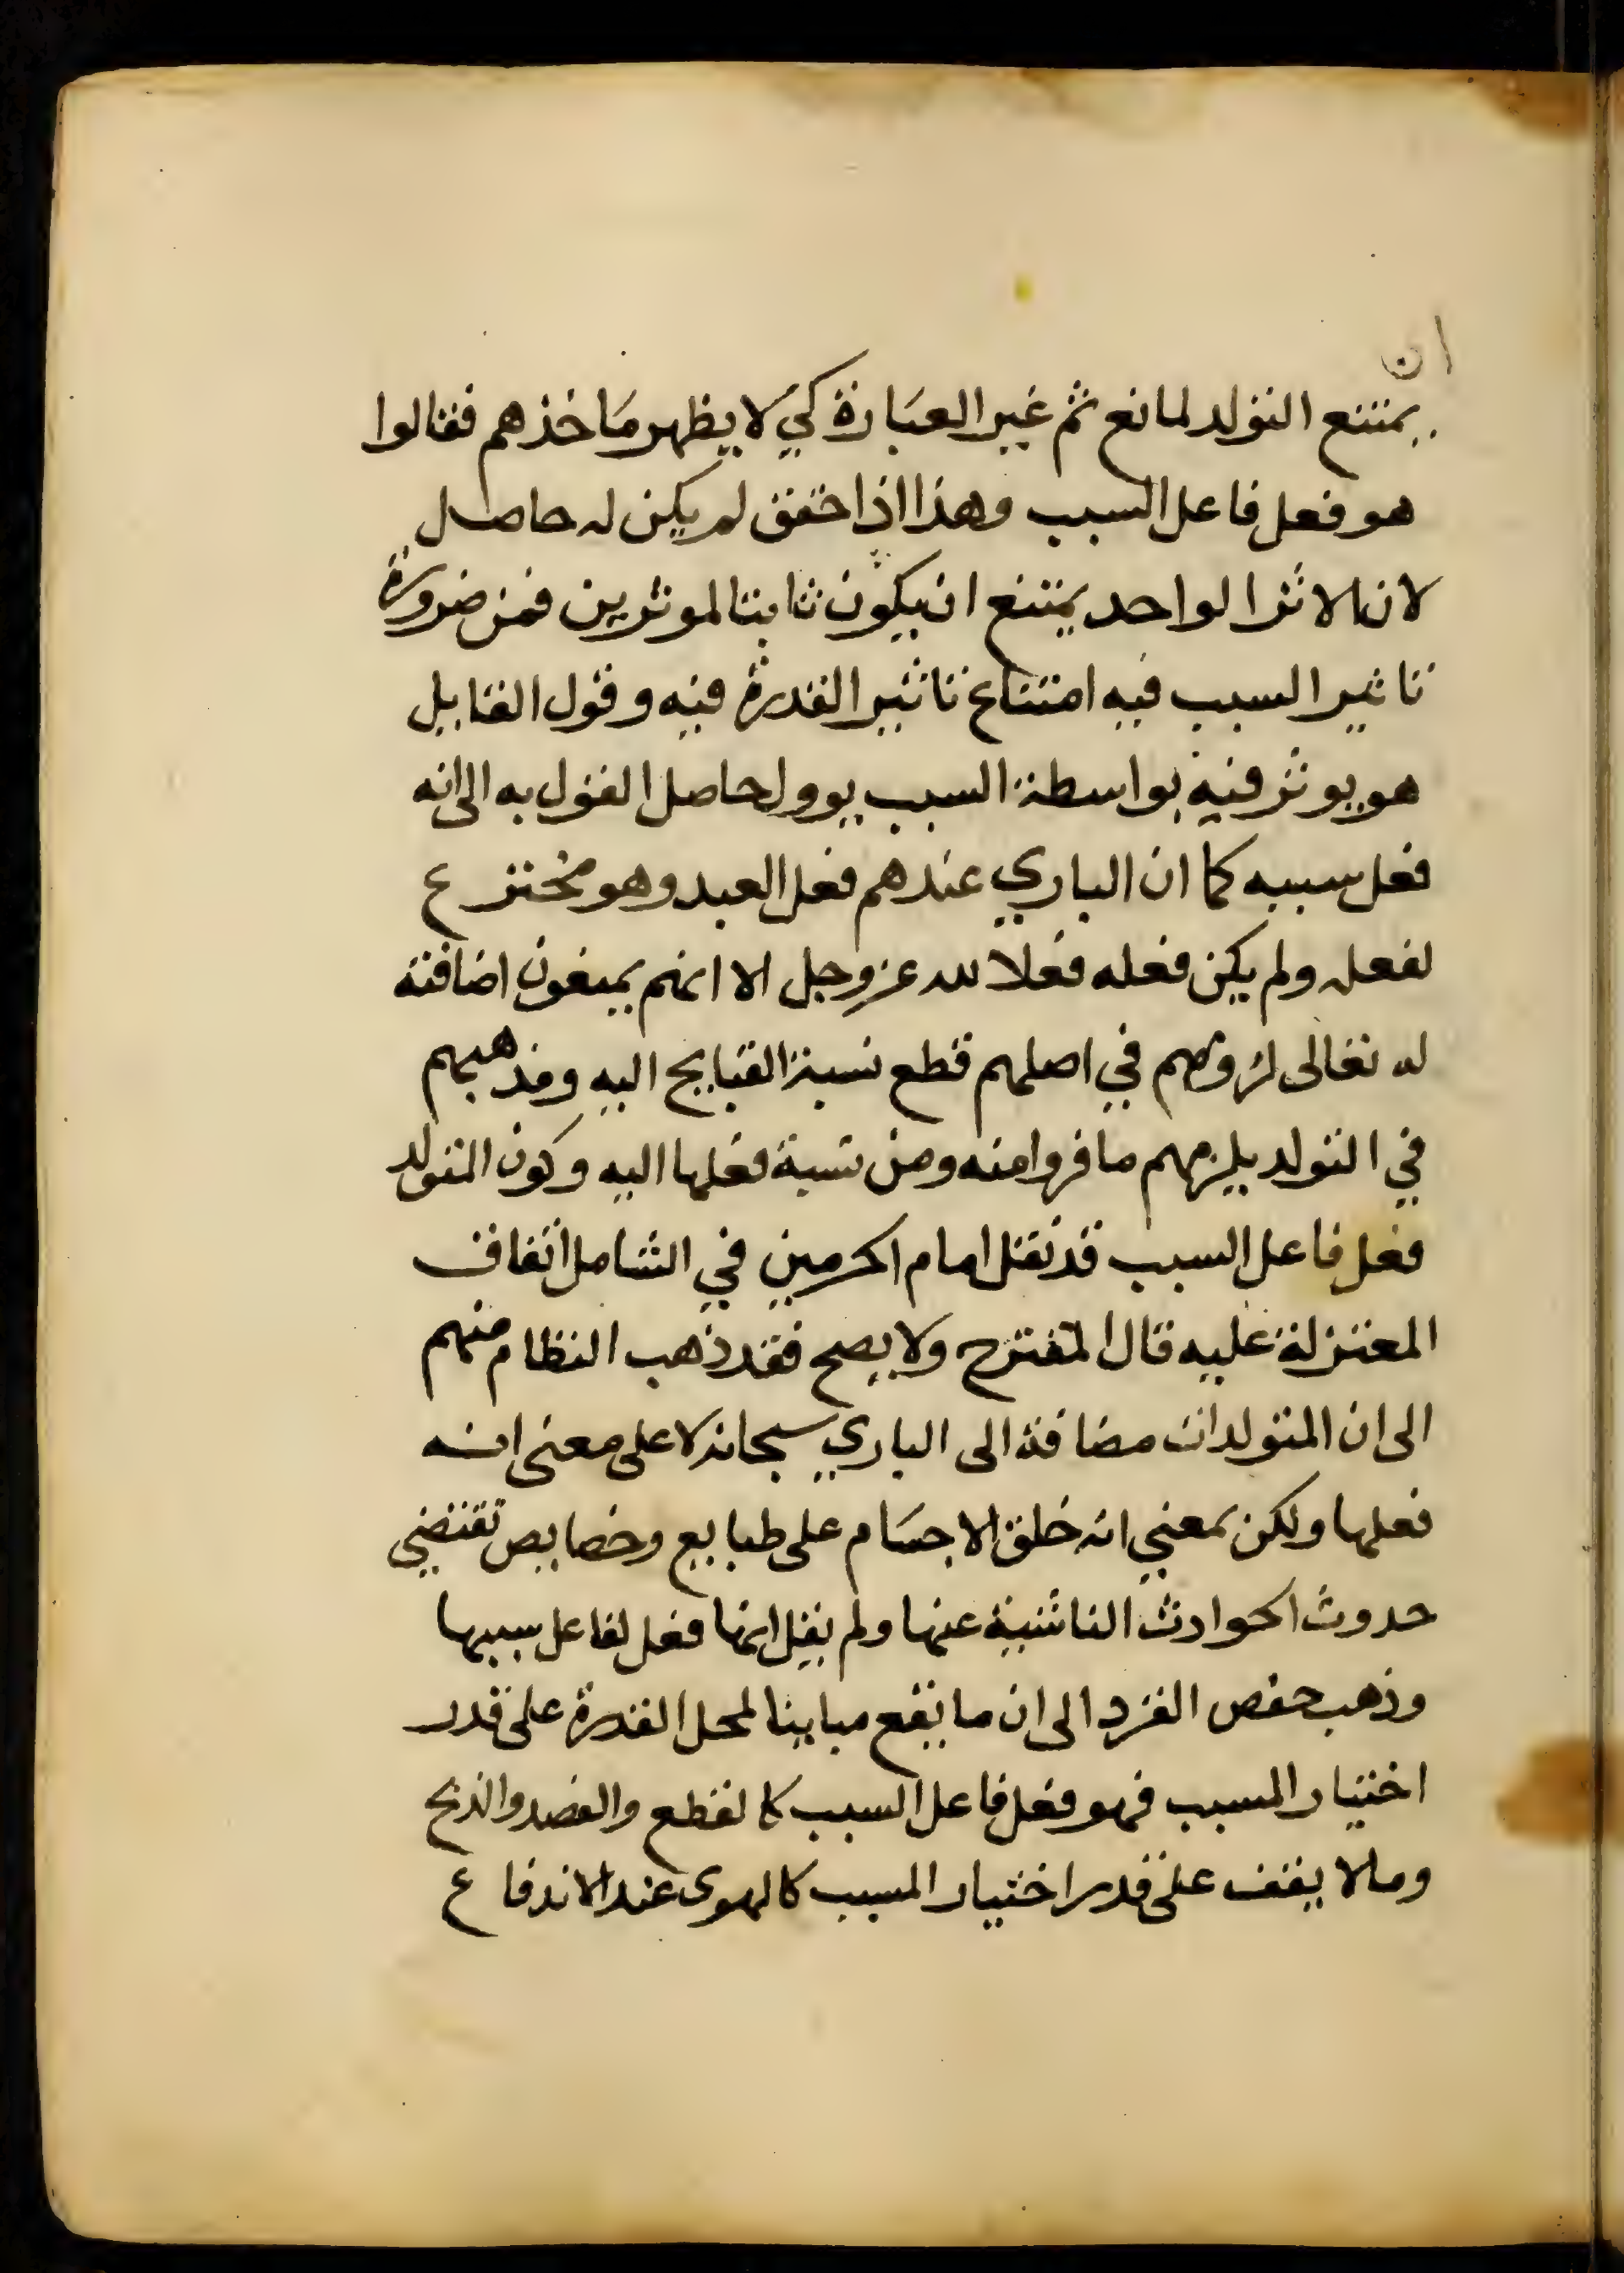 ان
يمتنع التولد لمانع ثم غير العبارة كي لا يظهر ماخذهم فقالوا
هو فعل فاعل السبب وهذا اذا حقق لم يكن له حاصل
لان الاثر الواحد يمتنع ان يكون ثابتا لموثرين فمن ضرورة
تاثير السبب فيه امتناع تاثير القدرة فيه وقول القايل
هو يوثر فيه بواسطة السبب يوول حاصل القول به الى انه
فعل سببه كما ان الباري عندهم فعل العبد وهو مخترع
لفعله ولم يكن فعله فعلا لله عز وجل الا انهم يمنعون اضافته
له تعالى لزومهم في اصلهم قطع نسبة القبايح اليه ومذهبهم
في التولد يلزمهم ما فروا منه ومن نسبة فعلها اليه وكون المتولد
فعل فاعل السبب قد نقل امام الحرمين في الشامل اتفاق
المعتزلة عليه قال المقترح ولا يصح فقد ذهب النظام منهم
الى ان المتولدات مضافة الى الباري سبحانه لا على معنى انه
فعلها ولكن بمعني انه خلق الاجسام على طبايع وخصايص تقتضي
حدوث الحوادث الناشئية عنها ولم يقل انها فعل لفاعل سببها
وذهب حفص الفرد الى ان ما يقع مباينا لمحل القدرة على قدر
اختيار المسبب فهو فعل فاعل السبب كالقطع والفصد والذبح
وما لا يقف على قدر اختيار المسبب كالهوى عند الاندفاع